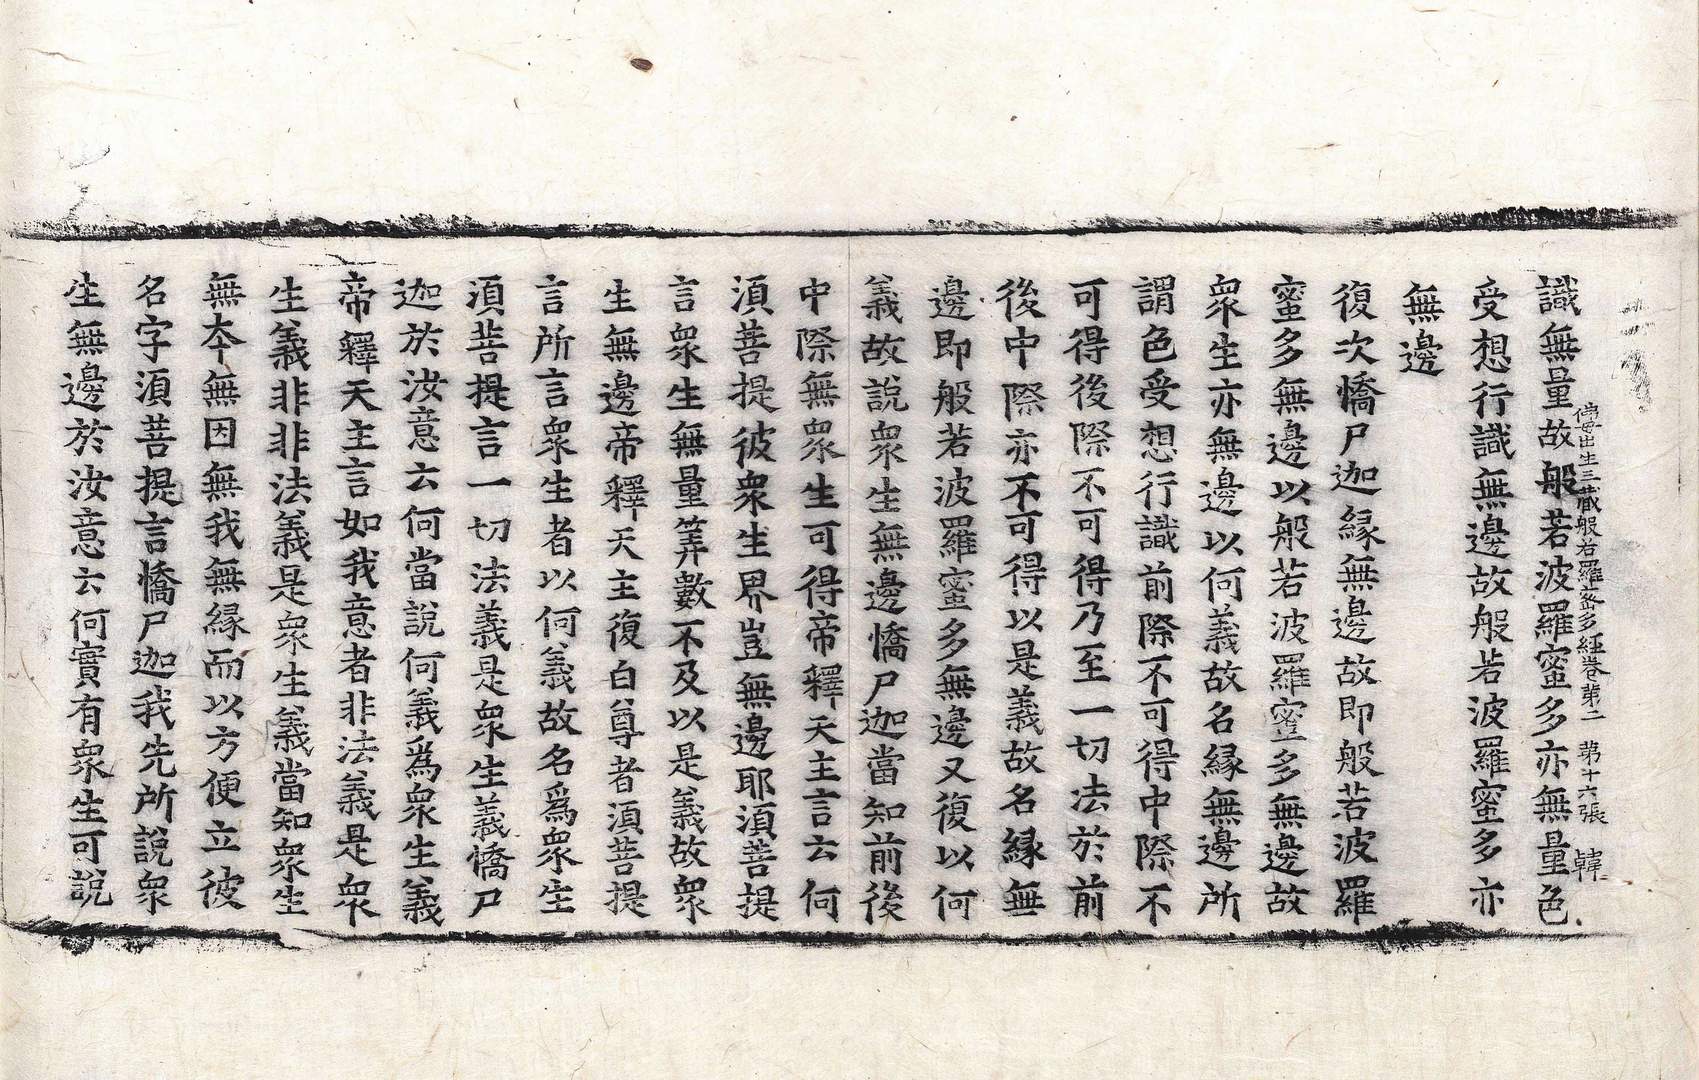 佛母出生三藏般若波羅蜜多經卷第二 第十六張 韓
識無量故般若波羅蜜多亦無量色
受想行識無邊故般若波羅蜜多亦
無邊
復次憍尸迦緣無邊故即般若波羅
蜜多無邊以般若波羅蜜多無邊故
衆生亦無邊以何義故名緣無邊所
謂色受想行識前際不可得中際不
可得後際不可得乃至一切法於前
後中際亦不可得以是義故名緣無
邊即般若波羅蜜多無邊又復以何
義故說衆生無邊憍尸迦當知前後
中際無衆生可得帝釋天主言云何
須菩提彼衆生界豈無邊耶須菩提
言衆生無量筭數不及以是義故衆
生無邊帝釋天主復白尊者須菩提
言所言衆生者以何義故名爲衆生
須菩提言一切法義是衆生義憍尸
迦於汝意云何當說何義爲衆生義
帝釋天主言如我意者非法義是衆
生義非非法義是衆生義當知衆生
無本無因無我無緣而以方便立彼
名字須菩提言憍尸迦我先所說衆
生無邊於汝意云何實有衆生可說